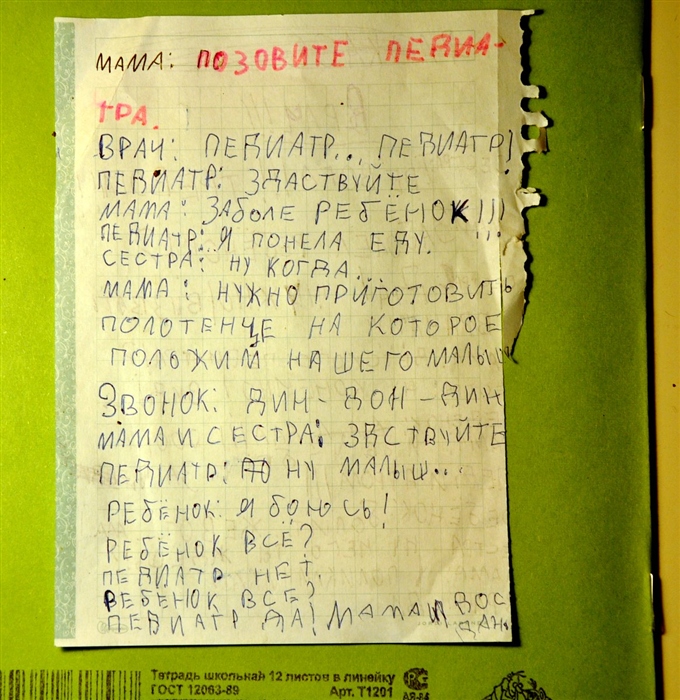 МАМА: ПОЗОВИТЕ ПЕДИА-
ТРА.
ВРАЧ: ПЕДИАТР... ПЕДИАТР!
ПЕДИАТР: ЗДАСТВУЙТЕ
МАМА: ЗАБОЛЕ РЕБЁНОК!!!
ПЕДИАТР: Я ПОНЕЛА ЕДУ.
СЕСТРА: НУ КОГДА...
МАМА: НУЖНО ПРИГОТОВИТЬ
ПОЛОТЕНЦЕ НА КОТОРОЕ
ПОЛОЖИМ НАШЕГО МАЛЫШ
ЗВОНОК: ДИН-ДОН-ДИН
МАМА И СЕСТРА: ЗДСТВУЙТЕ
ПЕДИАТР: НУ МАЛЫШ...
РЕБЁНОК: Я БОЮСЬ!
РЕБЁНОК ВСЁ?
ПЕДИАТР НЕТ.
РЕБЕНОК ВСЕ?
ПЕДИАТР ДА! МАМА И ДОС
ДАН.
Тетрадь школьная 12 листов в линейку
ГОСТ 12063-89 Арт. Т1201
АЯ-84